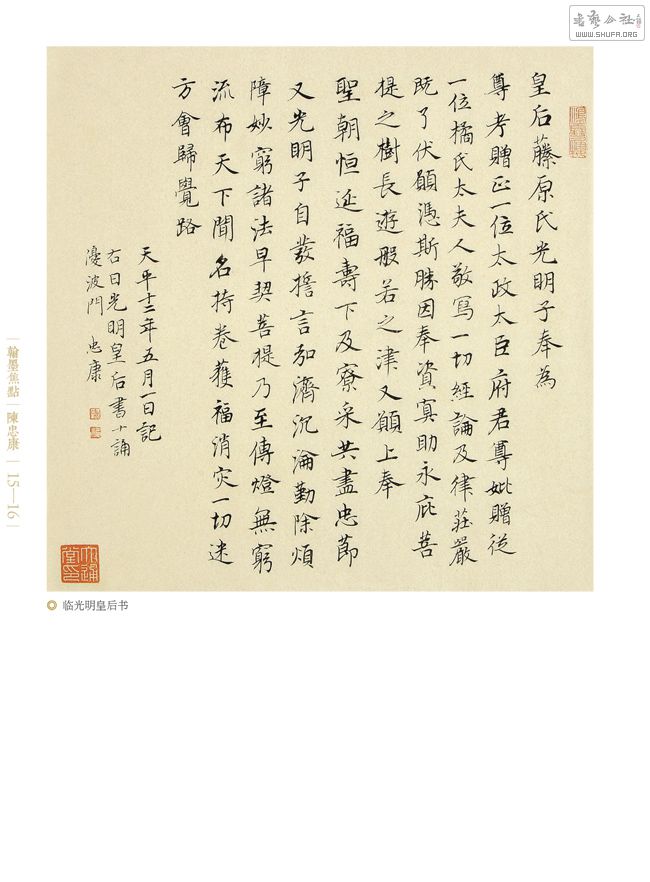 書藝公社
WWW.SHUFA.ORG
皇后藤原氏光明子奉為
尊考贈正一位太政太臣府君尊妣贈従
一位橘氏太夫人敬寫一切經論及律莊嚴
既了伏願憑斯勝因奉資冥助永庇菩
提之樹長遊般若之津又願上奉
聖朝恒延福壽下及寮采共盡忠節
又光明子自發誓言弘濟沉淪勤除煩
障妙窮諸法早契菩提乃至傳燈無窮
流布天下聞名持卷獲福消灾一切迷
方會歸覺路
天平十二年五月一日記
右日光明皇后書
忠康
翰墨焦點
陳忠康
15—16
临光明皇后书